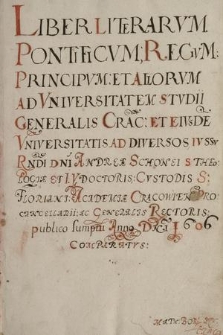 LIBER LITERARVM
PONTIFICVM, REGVM:
PRINCIPVM: ET ALIORVM
AD VNIVERSITATEM STVDII
GENERALIS CRAC: ET EIVSDE
VNIVERSITATIS AD DIVERSOS IVSSV
RNDI DNI ANDREÆ SCHONEI S THEO-
LOGIÆ ET IV DOCTORIS: CVSTODIS S:
FLORIANI: ACADEMIÆ CRACOVIEN PRO
CANCELLARII: AC GENERALIS RECTORIS:
publico sumptu Anno DNI 1606
COMPARATVS: